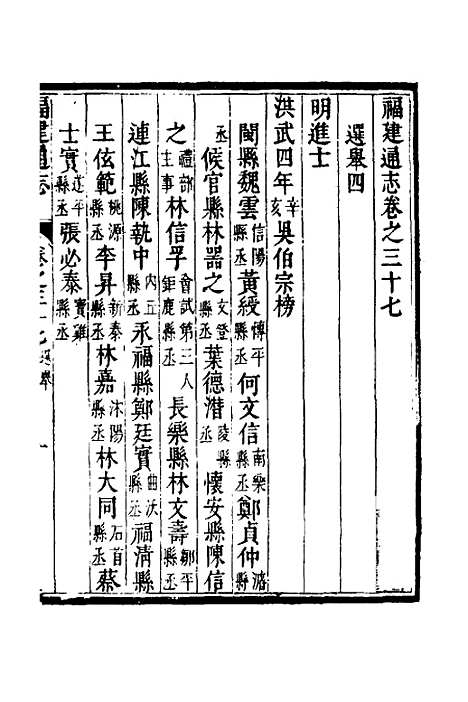 福建通志卷之三十七
選舉四
明進士
洪武四年辛亥吳伯宗榜
閩縣魏雲信陽縣丞黃綬博平縣丞何文信南樂縣丞鄭貞仲潞縣
丞候官縣林器之文登縣丞葉德潛陵縣丞懷安縣陳信
之禮部主事林信孚會試第三人鉅鹿縣丞長樂縣林文壽鄒平縣丞
連江縣陳執中內丘縣丞永福縣鄭廷實曲沃縣丞福清縣
王伭範桃源縣丞李昇新泰縣丞林嘉沭陽縣丞林大同石首縣丞蔡
士實茌平縣丞張必泰寶雞縣丞
福建通志 卷之三十七 選舉 一